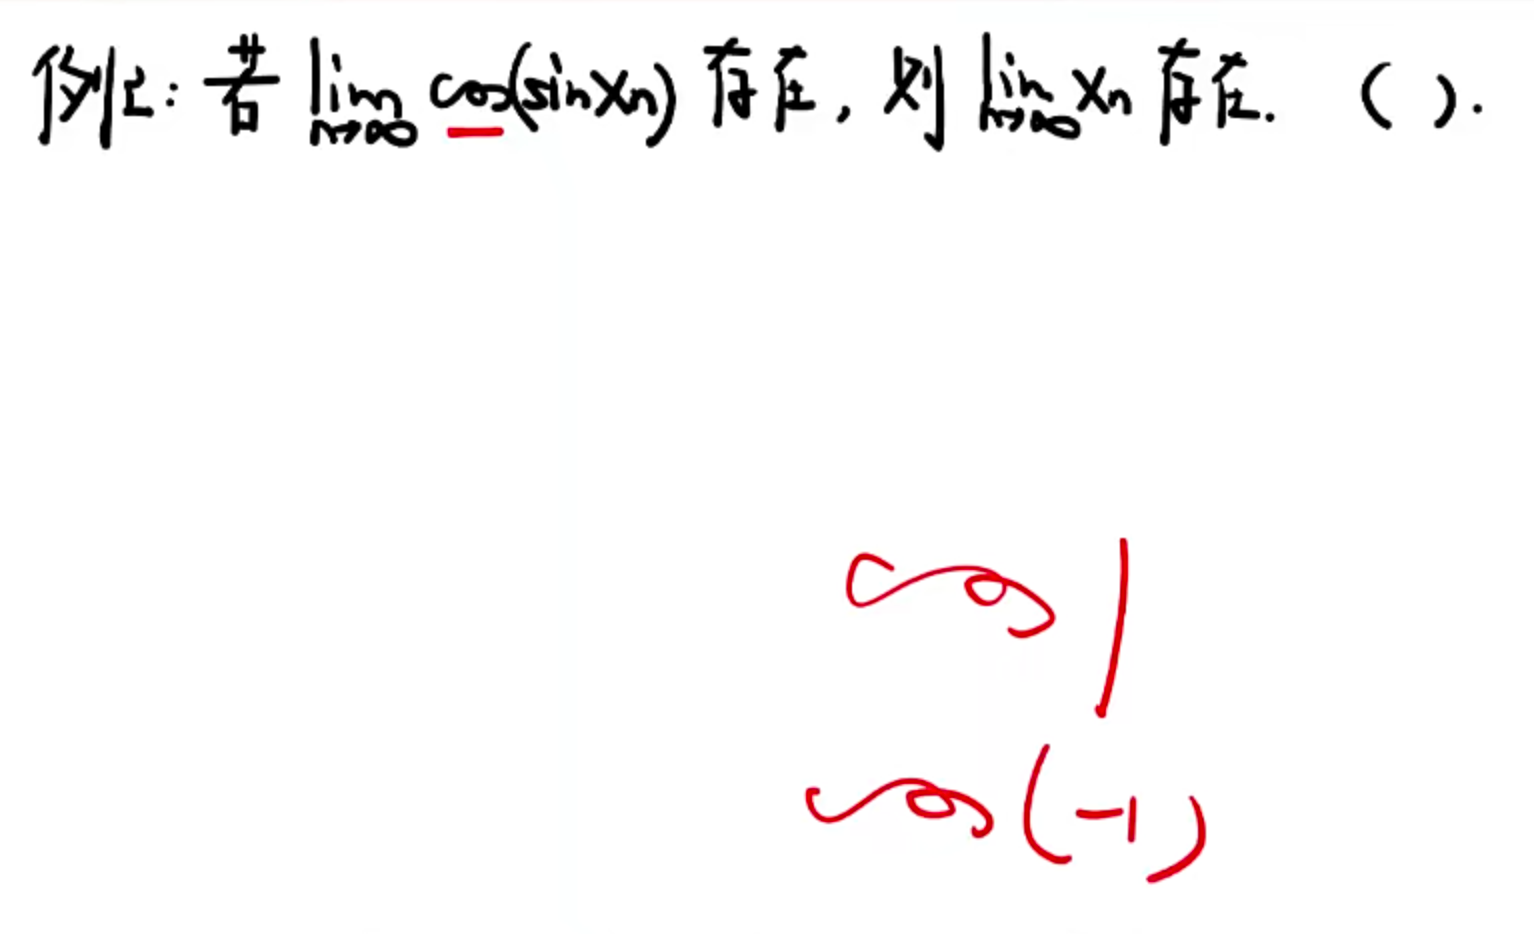 例2: 若 lim n→∞ cos(sin xn) 存在, 则 lim n→∞ xn 存在. ( ).
cos 1
cos(-1)